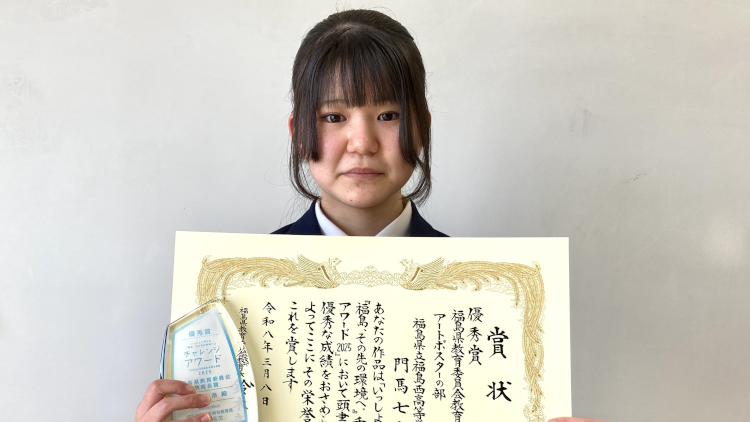 賞状
優秀賞
福島県教育委員会教育
アートポスターの部
福島県立福島西高等
門馬七
あなたの作品は「いっしょ
『福島、その先の環境へ。』チ
アワード2025』において頭書
優秀な成績をおさめら
よってここにその栄誉
これを賞します
令和八年三月八日
福島県教育
優秀賞
チャレンジ
アワード
2025